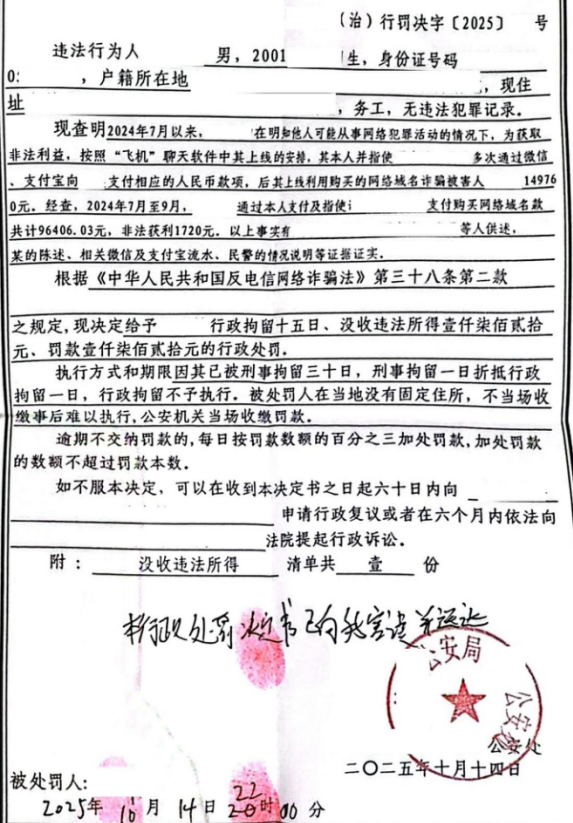 （治）行罚决字〔2025〕 号
违法行为人 男，2001 生，身份证号码
0: ，户籍所在地 ，现住
址 ，务工，无违法犯罪记录。
现查明2024年7月以来， 在明知他人可能从事网络犯罪活动的情况下，为获取
非法利益，按照“飞机”聊天软件中其上线的安排，其本人并指使 多次通过微信
、支付宝向 支付相应的人民币款项，后其上线利用购买的网络域名诈骗被害人 14976
0元。经查，2024年7月至9月， 通过本人支付及指使 支付购买网络域名款
共计96406.03元，非法获利1720元。以上事实有 等人供述，
某的陈述、相关微信及支付宝流水、民警的情况说明等证据证实。
根据《中华人民共和国反电信网络诈骗法》第三十八条第二款
之规定，现决定给予 行政拘留十五日、没收违法所得壹仟柒佰贰拾
元、罚款壹仟柒佰贰拾元的行政处罚。
执行方式和期限因其已被刑事拘留三十日，刑事拘留一日折抵行政
拘留一日，行政拘留不予执行。被处罚人在当地没有固定住所，不当场收
缴事后难以执行，公安机关当场收缴罚款。
逾期不交纳罚款的，每日按罚款数额的百分之三加处罚款，加处罚款
的数额不超过罚款本数。
如不服本决定，可以在收到本决定书之日起六十日内向
申请行政复议或者在六个月内依法向
法院提起行政诉讼。
附： 没收违法所得 清单共 壹 份
行政处罚决定书已向我宣读并送达
公安局
公安处
二〇二五年十月十四日
被处罚人：
2025年 10月 14日 22时00分